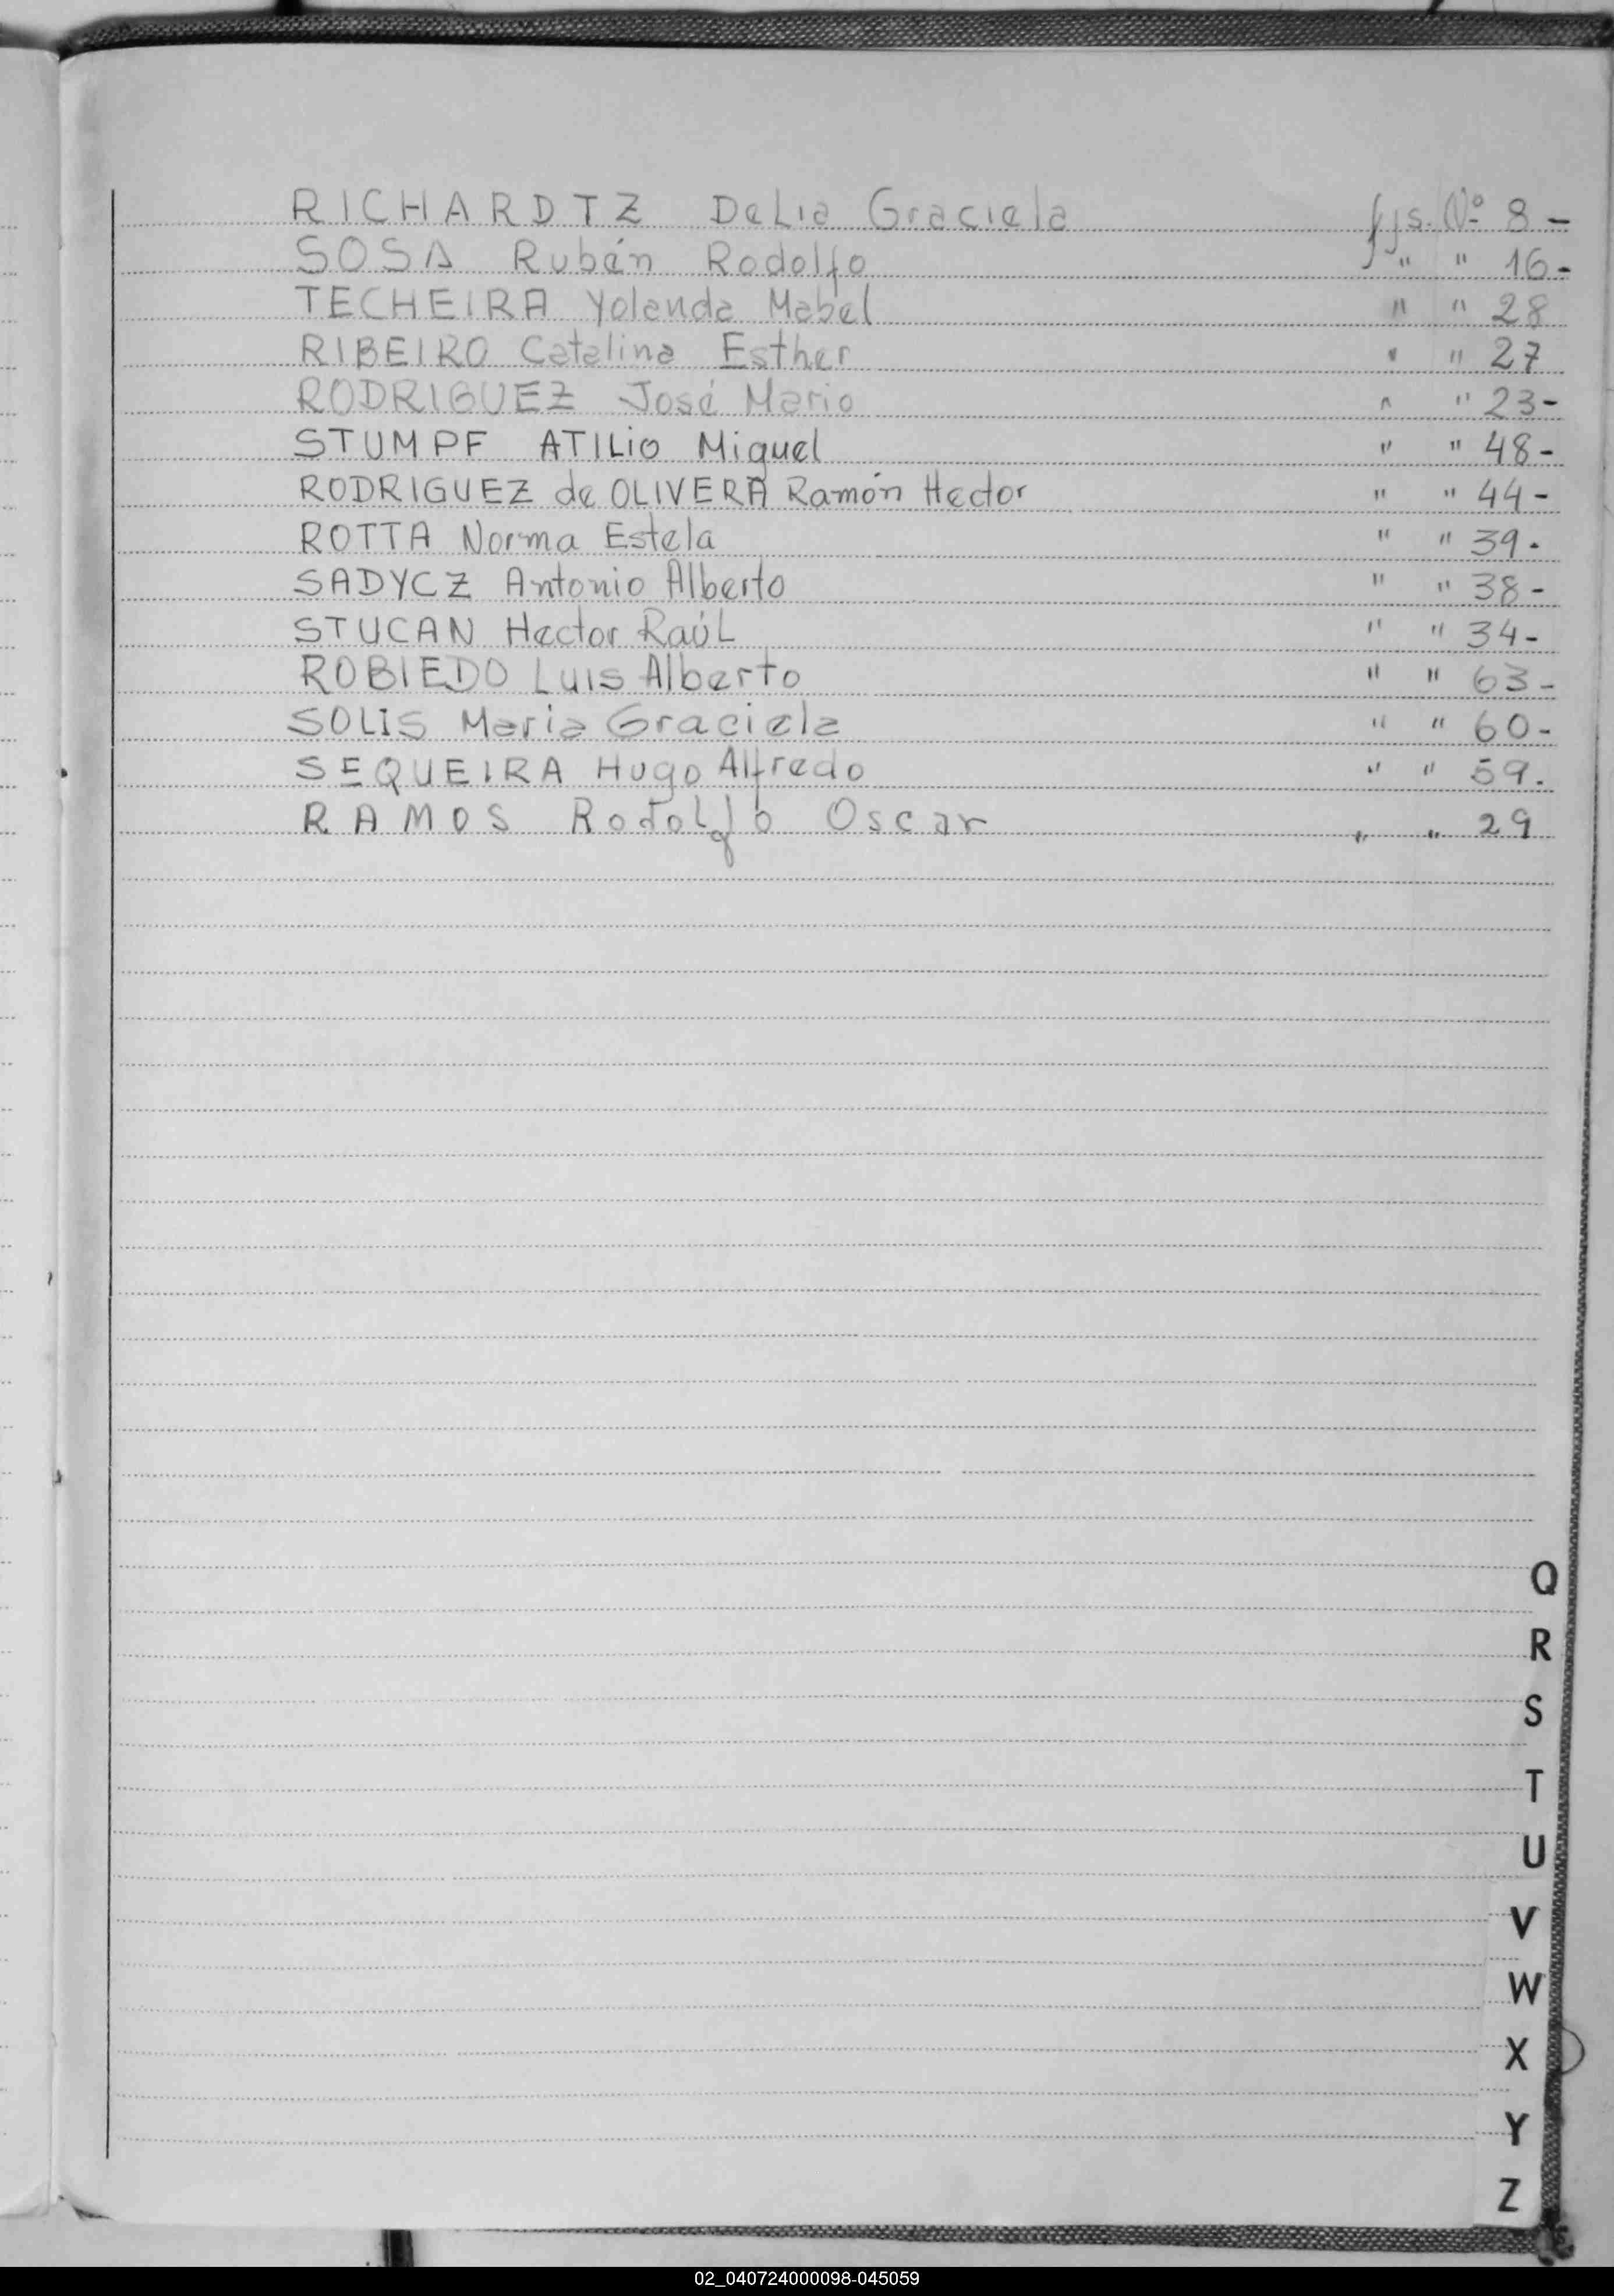 RICHARDTZ DeLia Graciela fjs. Nº 8 -
SOSA Rubén Rodolfo " " 16 -
TECHEIRA Yolanda Mabel " " 28
RIBEIRO Catalina Esther " " 27
RODRIGUEZ José Mario " " 23 -
STUMPF ATILio Miguel " " 48 -
RODRIGUEZ de OLIVERA Ramón Hector " " 44 -
ROTTA Norma Estela " " 39 -
SADYCZ Antonio Alberto " " 38 -
STUCAN Hector RaúL " " 34 -
ROBLEDO Luis Alberto " " 63 -
SOLIS Maria Graciela " " 60 -
SEQUEIRA Hugo Alfredo " " 59.
RAMOS RodoLfo Oscar " " 29
Q
R
S
T
U
V
W
X
Y
Z
02_040724000098-045059